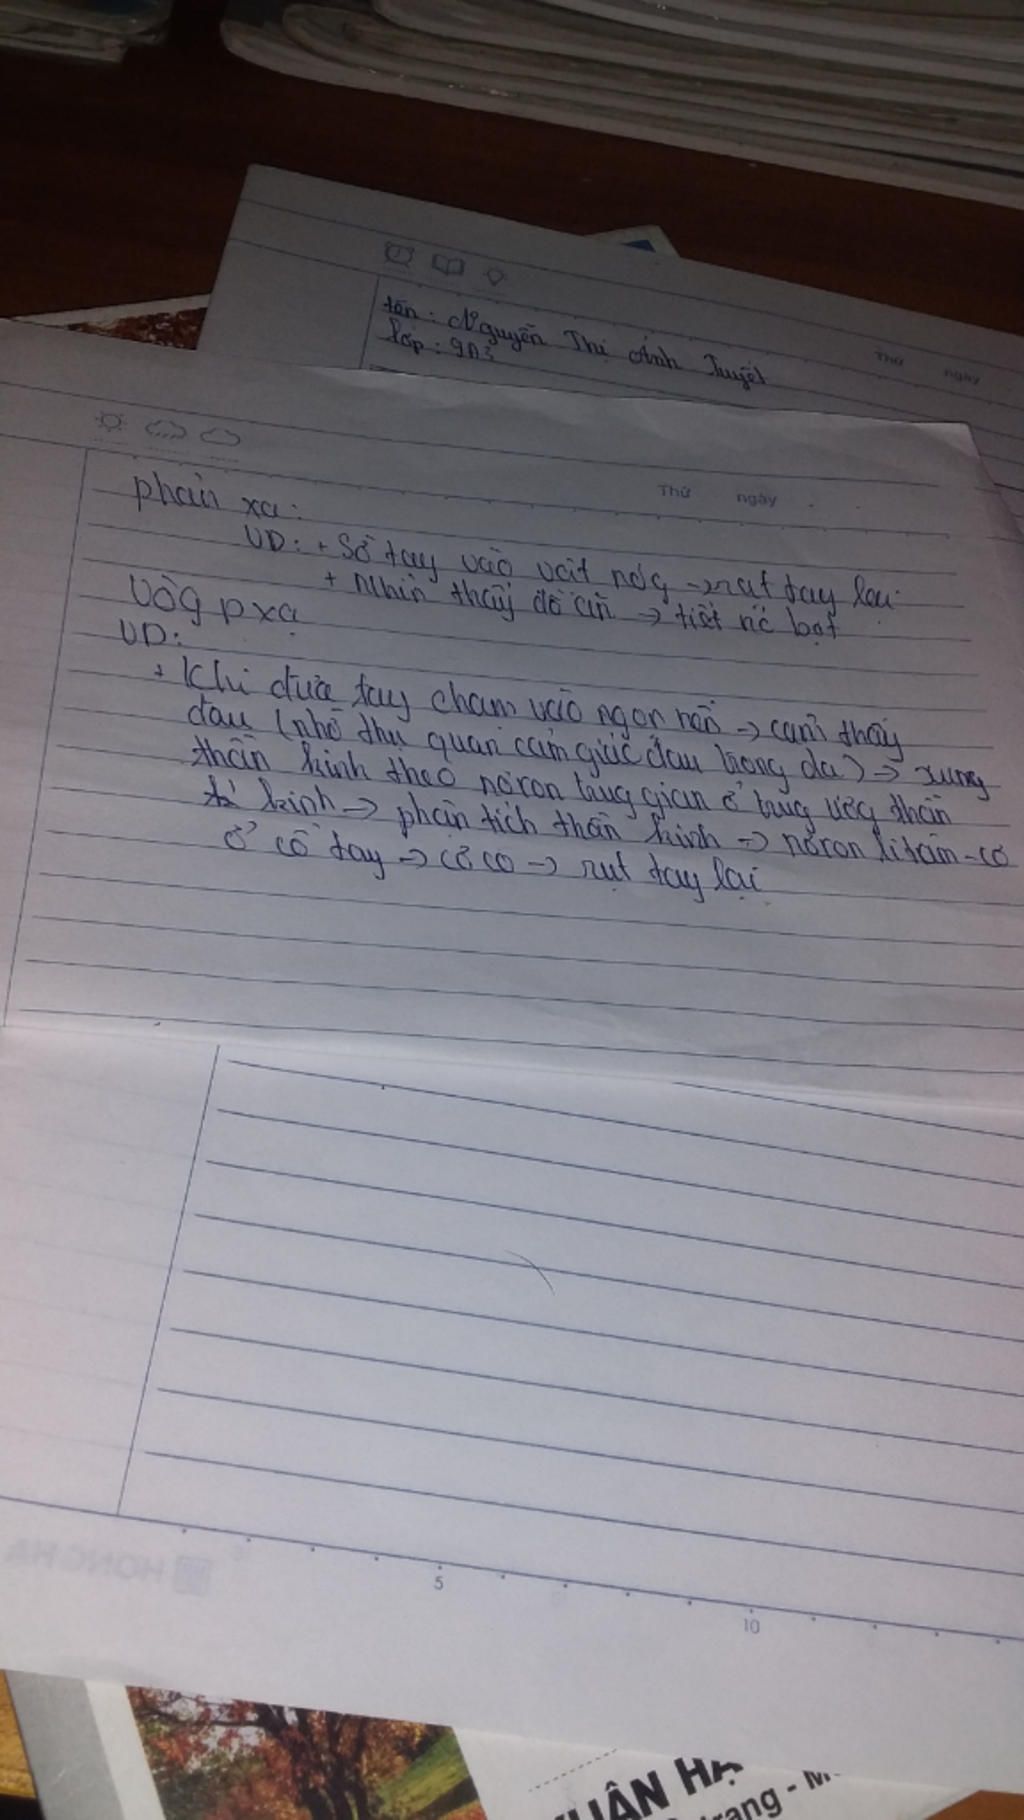 tên : Nguyễn Thị Ánh Tuyết
lớp : 9A3
Thứ ngày
Thứ ngày
phản xạ:
VD: + Sờ tay vào vật nóg → rut tay lại
+ Nhìn thấy đồ ăn → tiết nc bọt
Vòg pxạ
VD:
+ Khi đưa tay chạm vào ngọn nến → cảm thấy
đau (nhờ thụ quan cảm giác đau trong da) → xung
thần kinh theo nơron trung gian ở trung ươg thần
kinh → phân tích thần kinh → nơron li tâm - cơ
ở cổ tay → cơ co → rụt tay lại
HONG HA
5
10
UÂN HẠ
trang - M